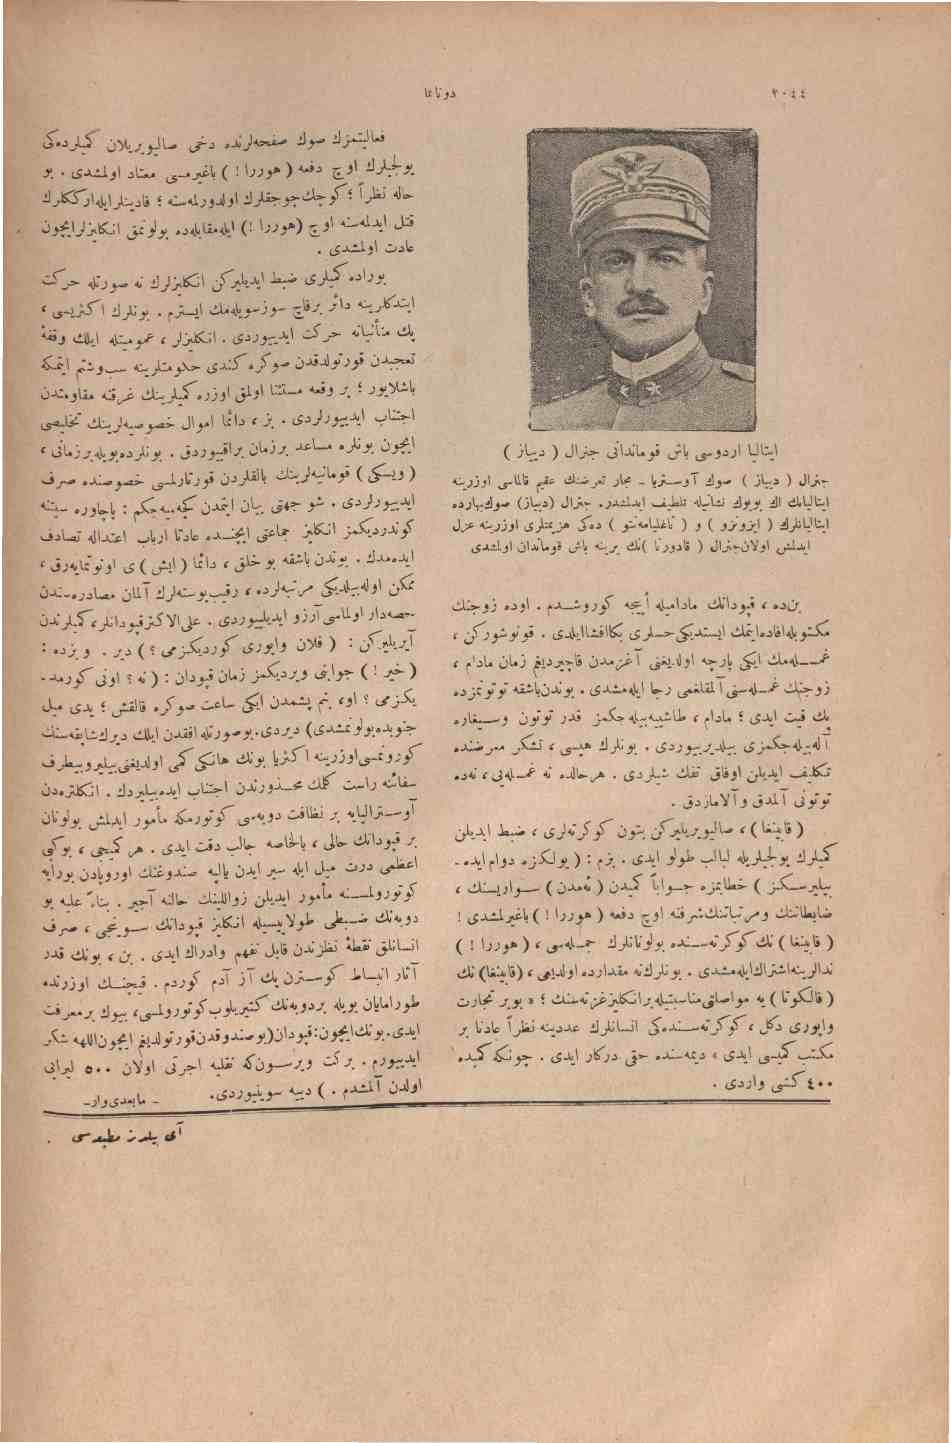 ٢٠٤٤
دونانما
ايتاليا اردوسى باش قوماندانى جنرال ( دىياز )
جنرال ( دىياز ) صوك آوستريا ـ مجار تعرضنك عقيم قالماسى اوزرينه
ايتاليانك اك بويوك نشانيله تلطيف ايدلمشدر. جنرال (دىياز) صوك‌بهارده
ايتاليانلرك ( ايزونزو ) و ( تاغليامه‌نتو ) ده‌كى هزيمتلرى اوزرينه عزل
ايدلمش اولان‌جنرال ( قادورنا )نك يرينه باش قوماندان اولمشدى
بن‌ده ، قپودانك ماداميله اييجه كوروشدم . اوده زوجنك
مكتوبله‌افاده‌ايتمك ايستديكى‌حسلرى بكاافشاايلدى . قونوشوركن ،
غمــله‌مك ايكى پارچه اولديغنى آغزمدن قاچيرديغم زمان مادام ،
زوجنك غمــله‌سنى آلمقلغمى رجا ايله‌مشدى . بوندن‌باشقه توتونمزده
پك قيت ايدى ؛ مادام ، طاشييه‌بيله‌جكمز قدر توتون وسيغاره
آله‌بيله‌جكمزى بيلديرييوردى . بونلرك هپسى ، تشكر معرضنده
تكليف ايديلن اوفاق تفك شيلردى . هرحالده نه غمــله‌يى ، نه‌ده
توتونى آلمدق وآلامازدق .
( قاپينغا ) ، صاليويريليركن بتون كوكرته‌لرى ، ضبط ايديلن
كميلرك يولجيلريله لبالب طولو ايدى . بزم : ( يولكزه دوام‌ايده‌ـ
بيليرسـكز ) خطابمزه جــواباً كميدن ( ئه‌مدن ) ســواريسنك ،
ضابطاننك ومرتباتنك‌شرفنه اوچ دفعه ( هوررا ! ) باغيرلمشدى !
( قاپينغا ) نك كوكرته‌ســنده بولونانلرك جمــله‌سى ، ( هوررا ! )
ندالرينه‌اشتراك‌ايله‌مشدى . بونلرك‌نه مقدارده اولديغى ، (قاپينغا) نك
( قالكوتا ) يه مواصلتى‌مناسبتيله‌برانكليزغزته‌سنك ؛ « بوبر تجارت
واپورى دكل ، كوكرته‌ســنده‌كى انسانلرك عددينه نظراً عادتا بر
مكتب كميسى ايدى » ديمه‌سنده حقى دركار ايدى . چونكه كميده
٤٠٠ كشى واردى .
فعاليتمزك صوك صفحه‌لرنده دخى صاليويريلان كميلرده‌كى
يولجيلرك اوچ دفعه ( هوررا ! ) باغيرمــسى معتاد اولمشدى . بو
حاله نظراً ؛ كوچك‌چوجقلرك اولدورلمه‌سنه ؛ قادينلرايله‌اركـكلرك
قتل ايدلمه‌سنه اوچ (هوررا !) ايله‌مقابله‌ده بولونمق انكليزلرايچون
عادت اولمشدى .
بوراده كميلرى ضبط ايديليركن انكليزلرك نه صورتله حركت
ايتدكلرينه دائر برقاچ سوزسويله‌مك ايسترم . بونلرك اكثريسى ،
پك متأنيانه حركت ايدييوردى . انكليزلر ، عموميتله ايلك وقفۀ
تعجبدن قورتولدقدن صوكره كندى حكومتلرينه سب‌وشتم ايتمكه
باشلايور ؛ بر وقعه مستثنا اولمق اوزره كميلرينك غرقنه مقاومتدن
اجتناب ايدييورلردى . بز ، دائما اموال خصوصيه‌لرينك تخليصى
ايچون بونلره مساعد برزمان براقييوردق . بونلرده‌بويله‌برزمانى ،
( ويسكى ) قومانيه‌لرينك بالقلردن قورتارلمسى خصوصنده صرف
ايدييورلردى . شو جهتى بيان ايتمدن كچه‌ميه‌جكم : پاچاوره سيننه
كوندرديكمز انكليز جماعتى ايچنــده عادتا ارباب اعتداله تصادف
ايده‌مدك . بوندن باشقه بو خلق ، دائما ( ايش ) ى اونوتمايه‌رق ،
ممكن اوله‌بيلديكى مرتبه‌لرده ، رقيب‌بوسته‌لرك آلمان مصادره‌سندن
حصه‌دار اولماسى آرزو ايديلييوردى . على‌الاكثرقپودانلر، كميلرندن
آيريليركن : ( فلان واپورى كورديكزمى ؟ ) دير . و بزده :
( خير ! ) جوابنى ويرديكمز زمان قپودان : ( نه ؟ اونى كورمدـ
يكزمى ؟ او، بنم پشمدن ايكى ساعت صوكره قالقش ؛ يدى ميل
جنوبده‌بولونمشدى) ديردى.بوصورتله افقدن ايلك ديرك‌شابقه‌سنك
كورونمسى‌اوزرينه اكثريا بونك هانكى كمى اولديغنى‌بيليروبيطرف
سفائنه راست كلمك محــذورندن اجتناب ايده‌بيليردك . انكلتره‌دن
آوستراليايه بر نظافت دوبه‌سى كوتورمكه مأمور ايدلمش بولونان
بر قپودانك حالى ، بالخاصه جالب دقت ايدى . هركميجى ، بوكبى
اعظمى درت ميل ايله سير ايدن يالپه صندوغنك اوروپادن بورايه
كوتورولمســنه مأمور ايديلن زواللينك حالنه آجير . بناءً عليه بو
دوبه‌نك ضــبطى طولاييسيله انكليز قپودانك ســوينجى ، صرف
انسانلق نقطۀ نظرندن قابل تفهم وادراك ايدى . بن ، بونك قدر
آثار انبــاط كوســترن پك آز آدم كوردم . قيجنــك اوزرنده
طورامايان بويله بردوبه‌نك كتيريلوب‌كوتورولمسى، بيوك برمعرفت
ايدى.بونك‌ايچون:قپودان(بوصندوقدن‌قورتولديغم ايچون‌اللهه شكر
ايدييورم . بركت ويرســون‌كه نقليه اجرتى اولان ٥٠٠ ليرايى
اولدن آلمشدم . ) دييه سوينيوردى .
ـ مابعدى‌وارـ
آى ييلديز مطبعه‌سى